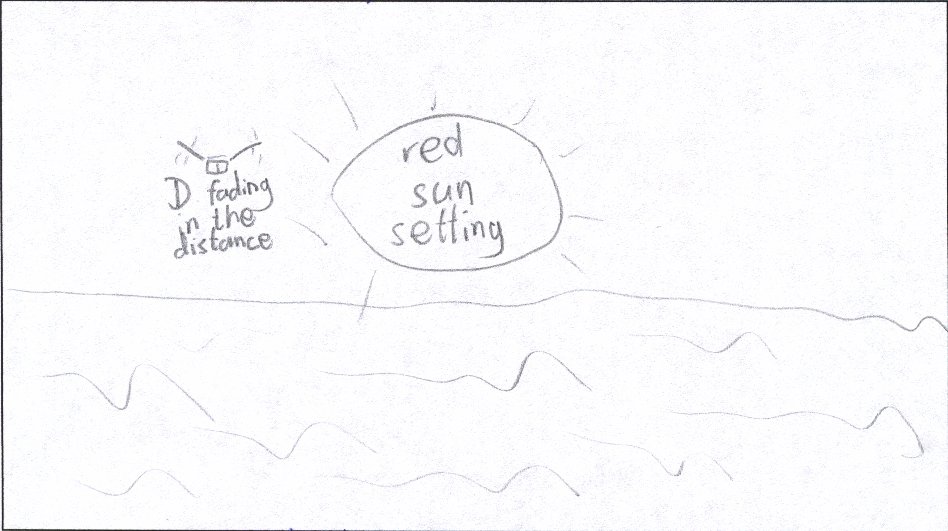 D fading
in the
distance
red
sun
setting